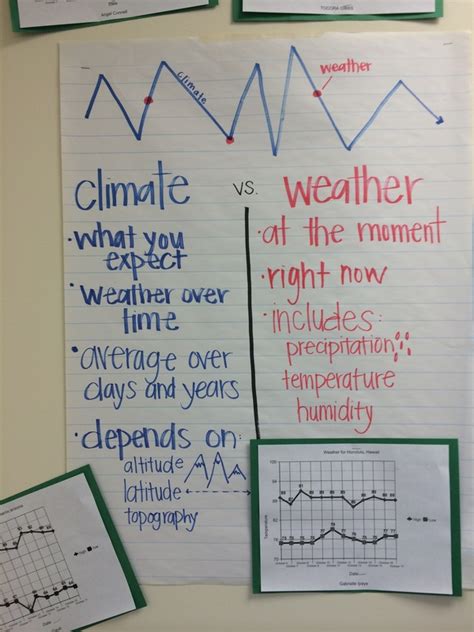 climate
weather
climate vs. weather
·what you
expect
·weather over
time
·average over
days and years
·depends on:
altitude
latitude
topography
·at the moment
·right now
·includes:
precipitation
temperature
humidity
Weather for Honolulu, Hawaii
Temperature
High Low
Date